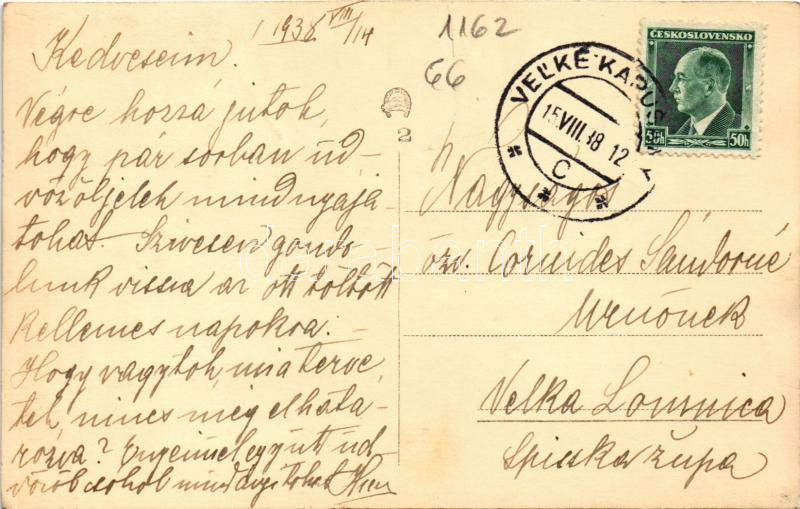 1938 VIII/14
Kedveseim.
Végre hozzá jutok,
hogy pár sorban üd-
vözöljelek mindnyája-
tokat. Szivesen gondo-
lunk vissza az ott töltött
kellemes napokra. –
Hogy vagytok, mi a terve-
tek, nincs még elhatá-
rozva? együtt üd-
mindnyájatokat
1162
66
2
ČESKOSLOVENSKO
50h 50h
VEĽKÉ KAPUŠ
15.VIII.38 12
C
Nagyságos
özv. Cornides Sándorné
Urnőnek
Velka Lomnica
Spisska župa
darabanth